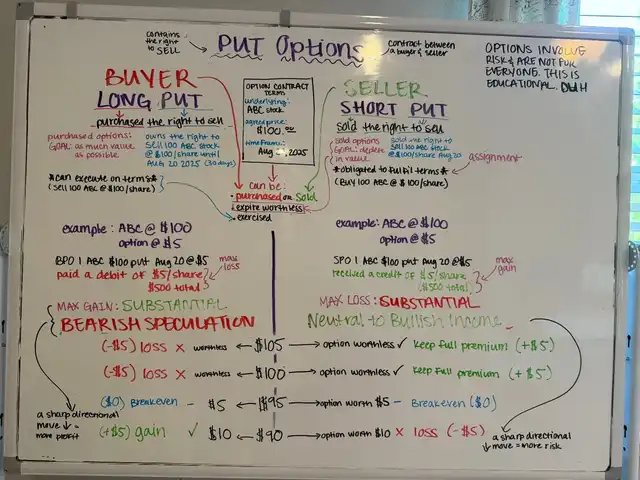 contains the right to SELL
PUT Options
contract between a buyer & seller
OPTIONS INVOLVE
RISK & ARE NOT FOR
EVERYONE. THIS IS
EDUCATIONAL. DWH
BUYER
LONG PUT
purchased the right to sell
purchased options:
GOAL: as much value
as possible
owns the right to
SELL 100 ABC STOCK
@ $100/share until
AUG 20 2025 (30 days)
*can execute on terms*
(Sell 100 ABC @ $100/share)
OPTION CONTRACT
TERMS
underlying:
ABC stock
agreed price:
$100.00
timeframe:
2025
can be:
• purchased or sold
• expire worthless
• exercised
SELLER
SHORT PUT
sold the right to sell
sold options
GOAL: deplete
in value
sold the right to
SELL 100 ABC stock
@ $100/share Aug 20
assignment
*obligated to fulfil terms*
(Buy 100 ABC @ $100/share)
example: ABC @ $100
option @ $5
BPO 1 ABC $100 put Aug 20 @ $5
paid a debit of $5/share
$500 total
max
loss
MAX GAIN: SUBSTANTIAL
BEARISH SPECULATION
example: ABC @ $100
option @ $5
SPO 1 ABC $100 put Aug 20 @ $5
received a credit of $5/share
($500 total)
max
gain
MAX LOSS: SUBSTANTIAL
Neutral to Bullish Income
(-$5) loss × worthless ← $105 → option worthless ✓ keep full premium (+$5)
(-$5) loss × worthless ← $100 → option worthless ✓ keep full premium (+$5)
($0) Breakeven - $5 ← $95 → option worth $5 - Breakeven ($0)
(+$5) gain ✓ $10 ← $90 → option worth $10 × loss (-$5)
a sharp directional
move ↓ =
more profit
a sharp directional
↓ move = more risk